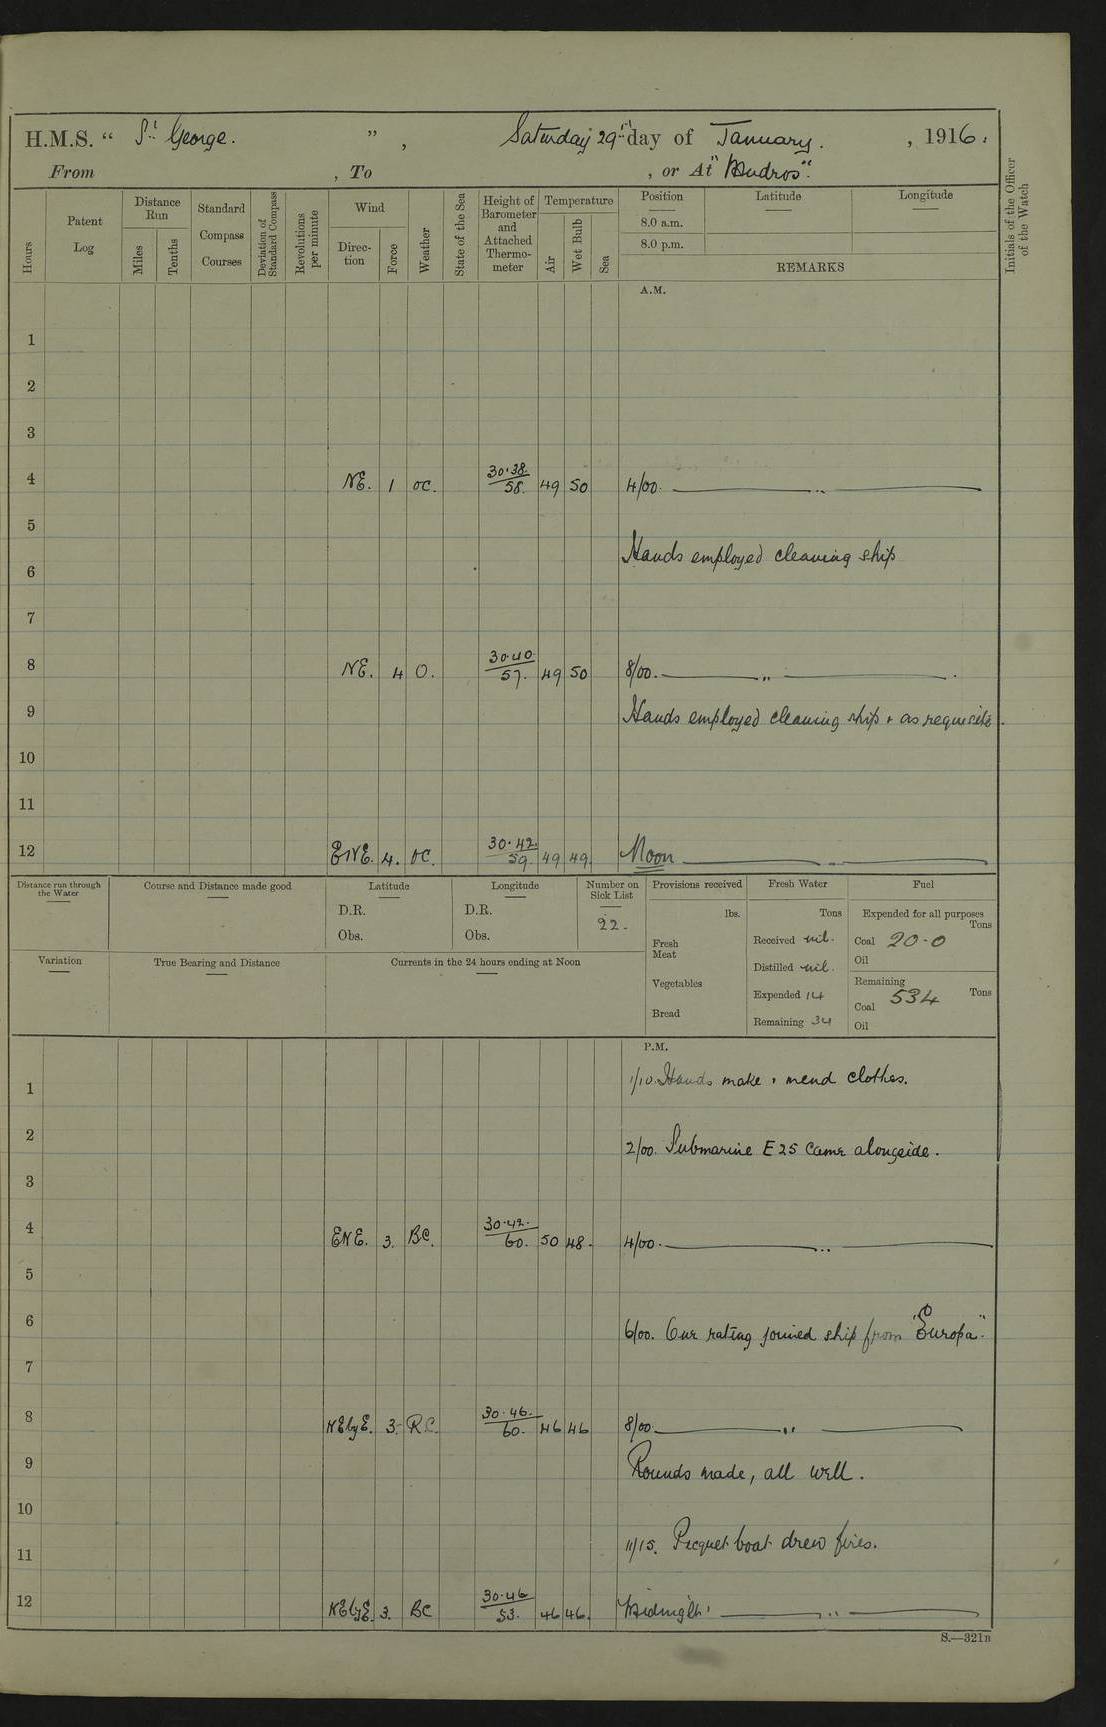 H.M.S. " St George. ", Saturday 29th day of January. , 1916.
From , To , or At "Mudros".
Hours
Patent Log
Distance Run
Miles
Tenths
Standard Compass Courses
Deviation of Standard Compass
Revolutions per minute
Wind
Direc-tion
Force
Weather
State of the Sea
Height of Barometer and Attached Thermo-meter
Temperature
Air
Wet Bulb
Sea
Position
8.0 a.m.
8.0 p.m.
Latitude
Longitude
REMARKS
Initials of the Officer of the Watch
A.M.
1
2
3
4 NE. 1 oc. 30.38. 58. 49 50 4/00. — " —
5
Hands employed cleaning ship
6
7
8 NE. 4 O. 30.40 57. 49 50 8/00. — " —
9 Hands employed cleaning ship + as requisite.
10
11
12 ENE. 4. oc. 30.42. 59. 49 49. Noon — " —
Distance run through the Water
Course and Distance made good
Latitude
D.R.
Obs.
Longitude
D.R.
Obs.
Number on Sick List
22.
Provisions received
lbs.
Fresh Meat
Vegetables
Bread
Fresh Water
Tons
Received nil.
Distilled nil.
Expended 14
Remaining 34
Fuel
Expended for all purposes
Tons
Coal 20.0
Oil
Remaining
Tons
Coal 534
Oil
Variation
True Bearing and Distance
Currents in the 24 hours ending at Noon
P.M.
1 1/10. Hands make + mend clothes.
2 2/00. Submarine E25 came alongside.
3
4 ENE. 3. BC. 30.42. 60. 50 48. 4/00. — " —
5
6 6/00. One rating joined ship from "Europa".
7
8 NEbyE. 3. 30.46. 60. 46 46 8/00. — " —
9 Rounds made, all well.
10
11 11/15. Picquet boat drew fires.
12 NEbyE. 3. BC 30.46 53. 46 46. Midnight. — " —
S.—321B